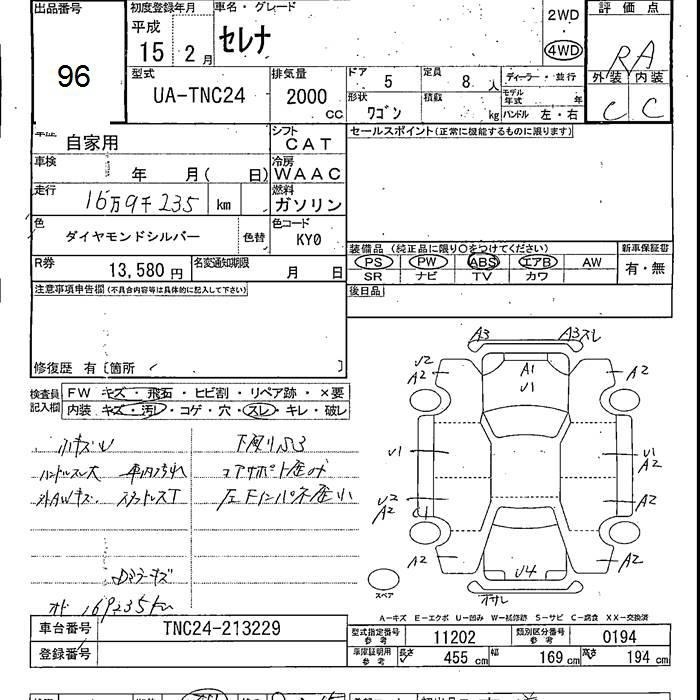 出品番号 初度登録年月 車名・グレード 2WD 評価点
96 平成 15 2月 セレナ 4WD RA
型式 排気量 ドア 定員 ディーラー・並行 外装 内装
UA-TNC24 2000 CC 5 8人 モデル年式 年 C C
形状 ワゴン 積載 kg ハンドル 左・右
車歴 自家用 シフト CAT セールスポイント(正常に機能するものに限ります)
車検 年 月( 日) 冷房 WAAC
走行 16万9千235 km 燃料 ガソリン
色 ダイヤモンドシルバー 色替 色コード KY0
装備品(純正品に限り○をつけてください) 新車保証書
R券 13,580円 名変通知期限 月 日 PS PW ABS エアB AW 有・無
SR ナビ TV カワ
注意事項申告欄(不具合内容等は具体的に記入して下さい) 後日品
修復歴 有〔箇所 〕
検査員記入欄 FW キズ・飛石・ヒビ割・リペア跡・×要
内装 キズ・汚レ・コゲ・穴・スレ・キレ・破レ
小キズU 下廻りサビ
ハンドルスレ大 車内汚れ コアサポート歪み
外AWキズ
Dミラーキズ
169235km
A3 A3スレ
U2 A2 A1 U1 A2
U1 U1 A2
U2 A2 A2
A2 U4 A2
スペア
A-キズ E-エクボ U-凹み W-補修跡 S-サビ C-腐食 XX-交換済
車台番号 TNC24-213229 型式指定番号 参考 11202 類別区分番号 参考 0194
登録番号 車庫証明用 参考 長さ 455cm 幅 169cm 高さ 194cm